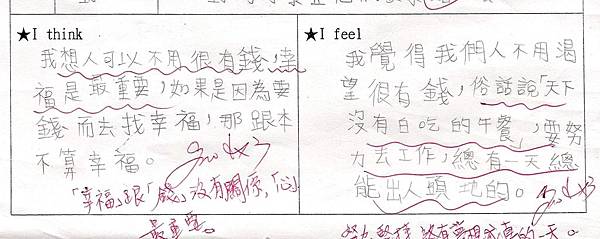 ★I think
我想人可以不用很有錢，幸
福是最重要，如果是因為要
錢而去找幸福，那跟本
不算幸福。
「幸福」跟「錢」沒有關係，「心」
最重要。
★I feel
我覺得我們人不用渴
望很有錢，俗話說「天下
沒有白吃的午餐」，要努
力去工作，總有一天總
能出人頭地的。
努力堅持，